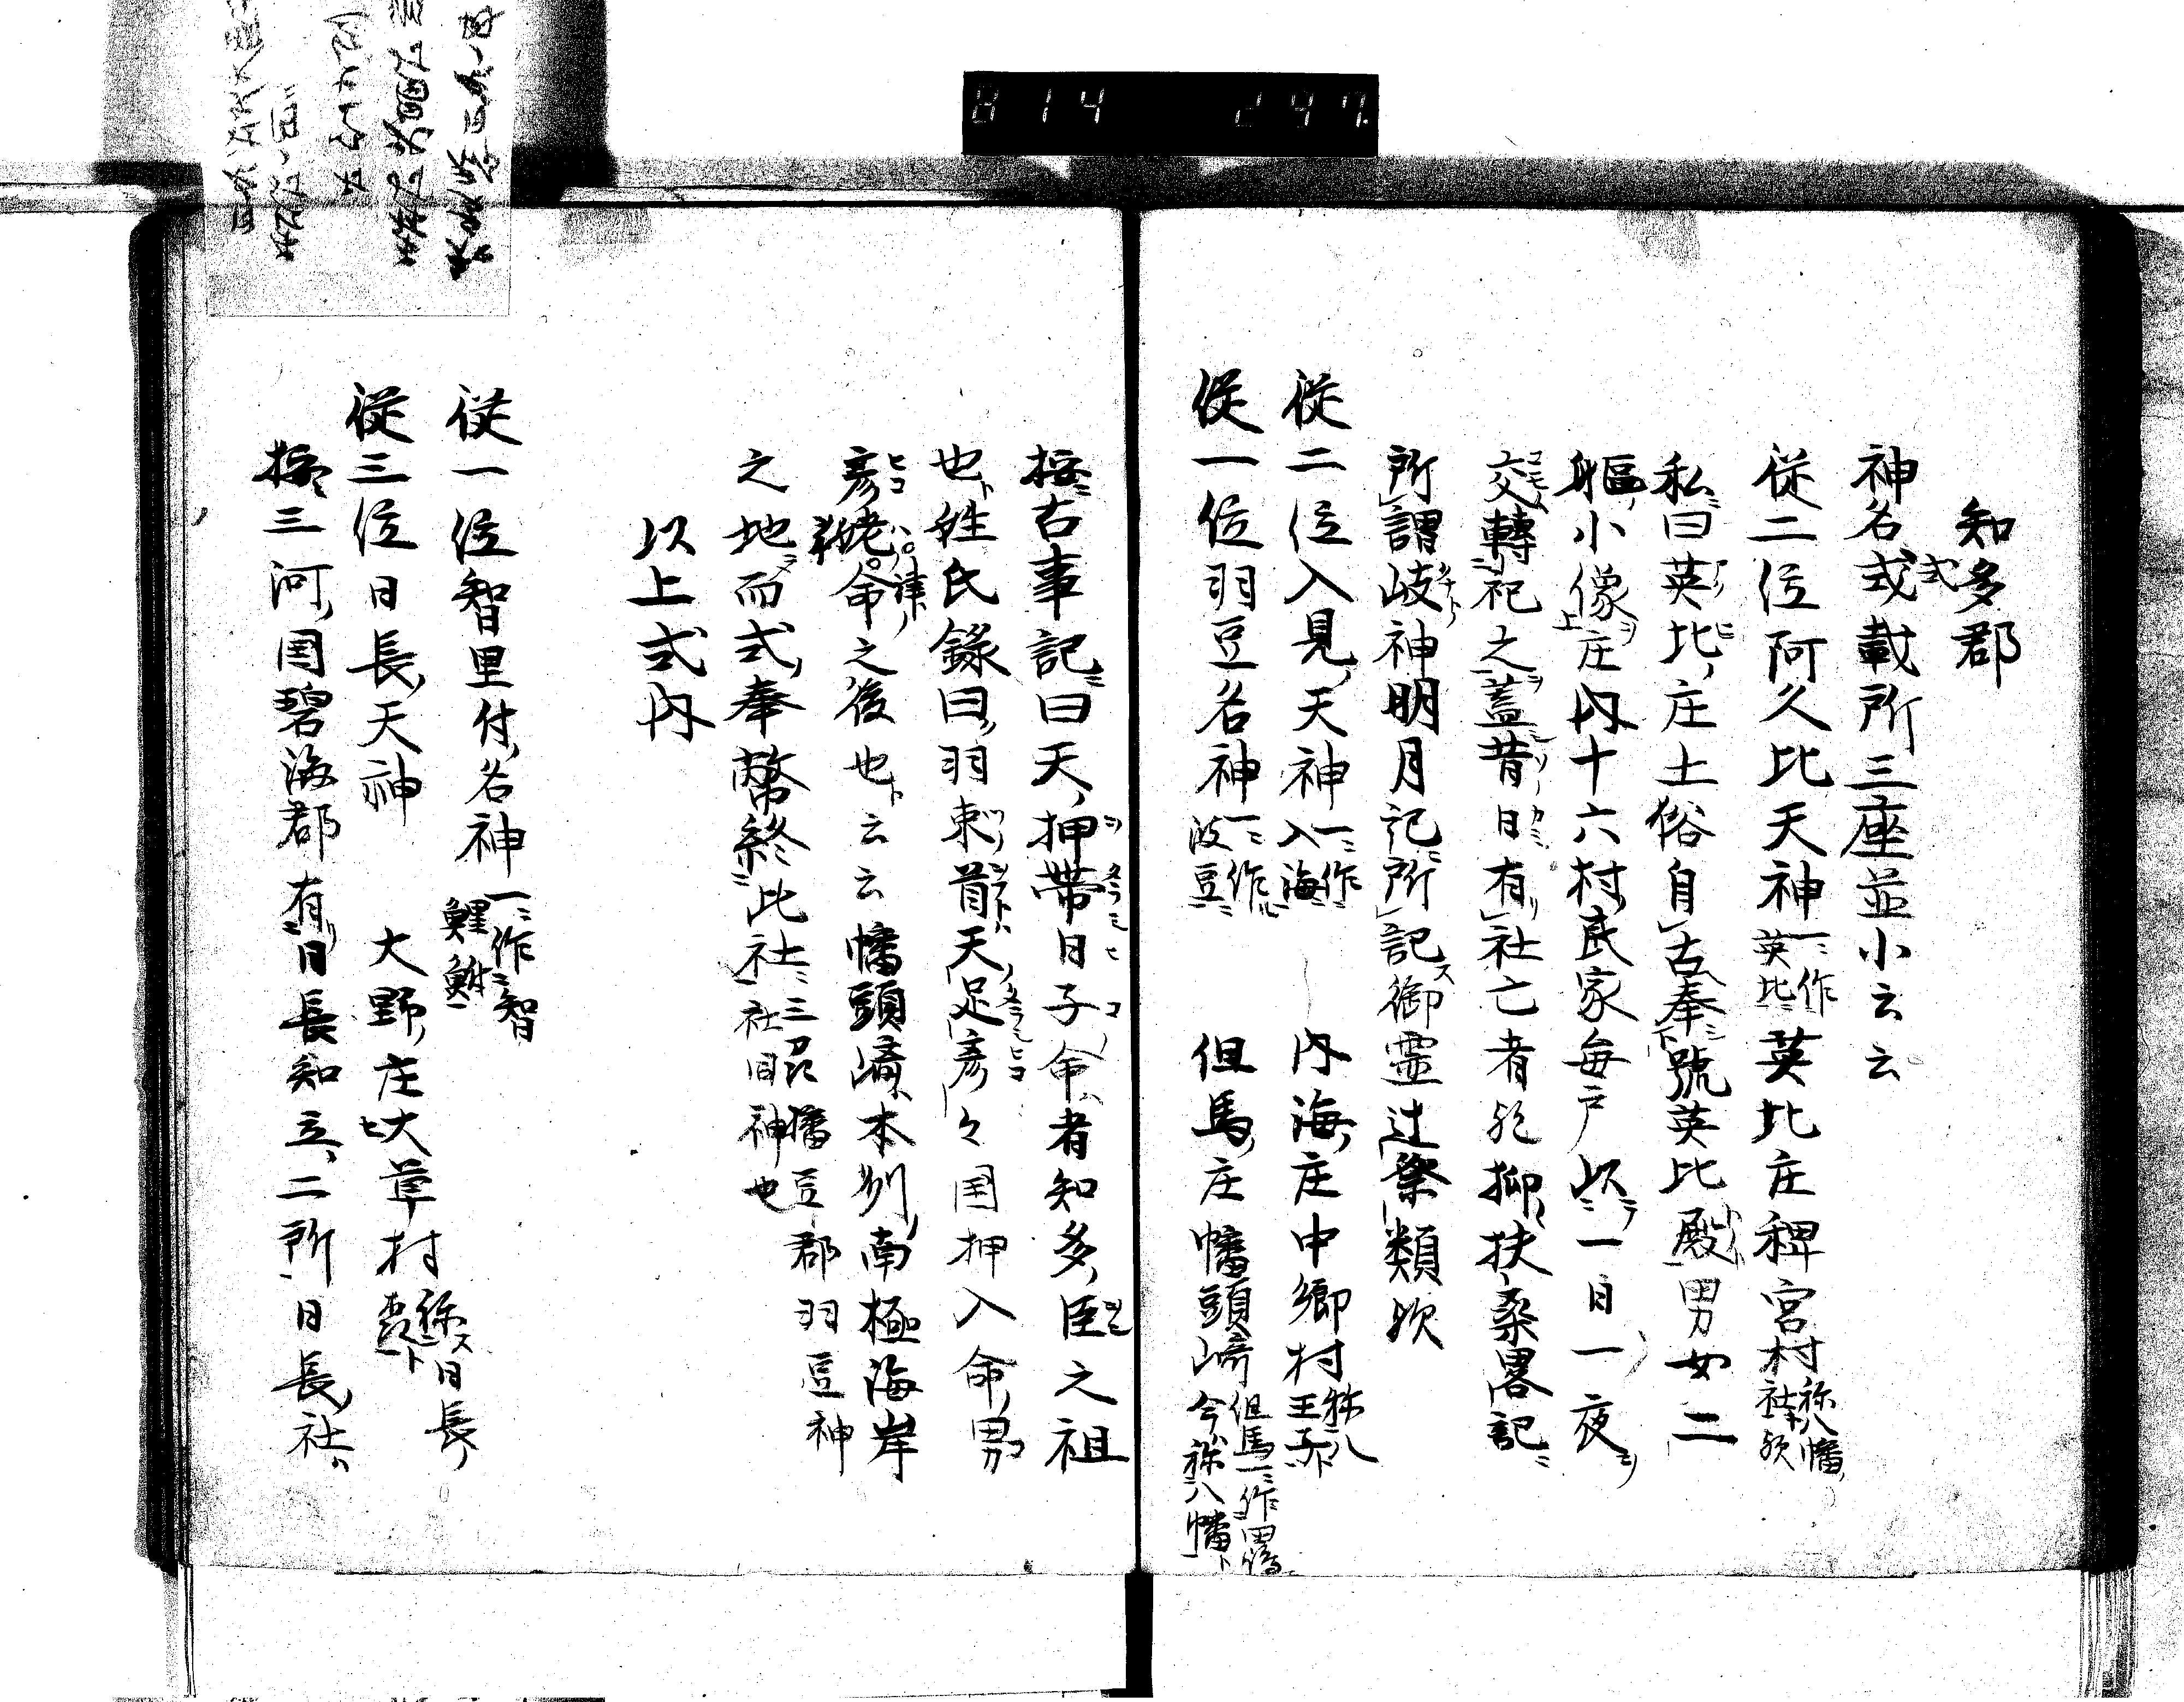 814 247
知多郡
神名式載所三座並小云云
従二位阿久比天神 一作英比 英比庄稗宮村 祢八幡社歟
私曰英比庄土俗自古奉號英比殿男女二
軀小像庄内十六村民家毎戸以一日一夜
交轉祀之蓋昔日有社亡者歟抑扶桑畧記
所謂岐神明月記所記御霊辻祭類歟
従二位入見天神 一作入海 内海庄中郷村 祢八王子
従一位羽豆名神 一作波豆 但馬庄幡頭崎 但馬一作田嶋今祢八幡
按古事記曰天押帯日子命者知多臣之祖
也姓氏録曰羽束首天足彦々国押入命男
彦姥津命之後也云云幡頭崎本州南極海岸
之地而式奉幣終此社 三河幡豆郡羽豆神社同神也
以上式内
従一位智里付名神 一作智鯉鮒
従三位日長天神 大野庄大草村 祢日長
按三河国碧海郡有日長知立二所日長社